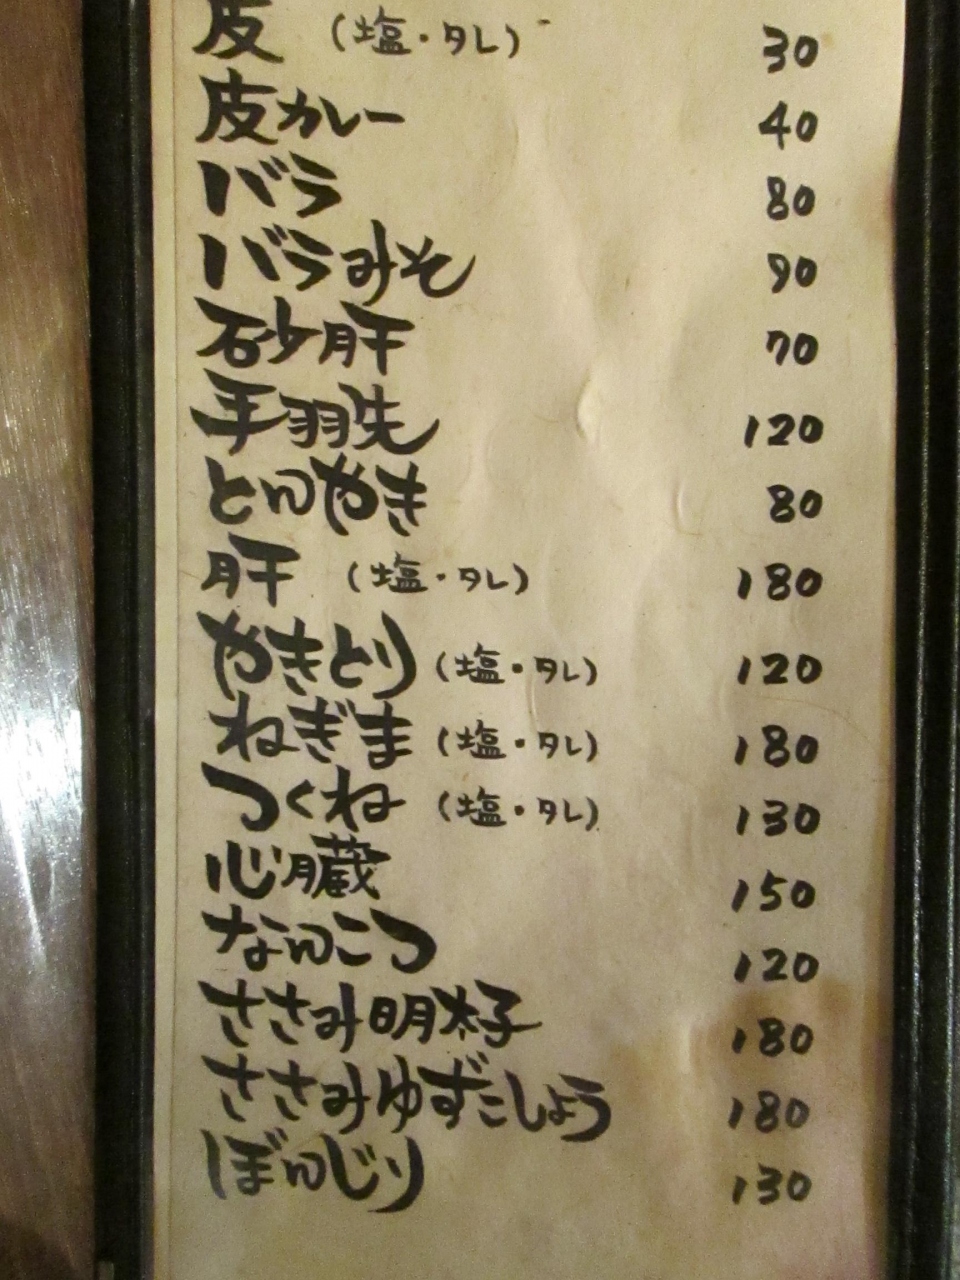 皮 (塩・タレ) 30
皮カレー 40
バラ 80
バラみそ 90
砂肝 70
手羽先 120
とんやき 80
肝 (塩・タレ) 180
やきとり (塩・タレ) 120
ねぎま (塩・タレ) 180
つくね (塩・タレ) 130
心臓 150
なんこつ 120
ささみ明太子 180
ささみゆずこしょう 180
ぼんじり 130